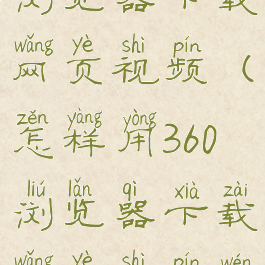 浏览器下载
wǎng yè shì pín
网页视频（
zěn yàng yòng
怎样用360
liú lǎn qì xià zài
浏览器下载
wǎng yè shì pín wén